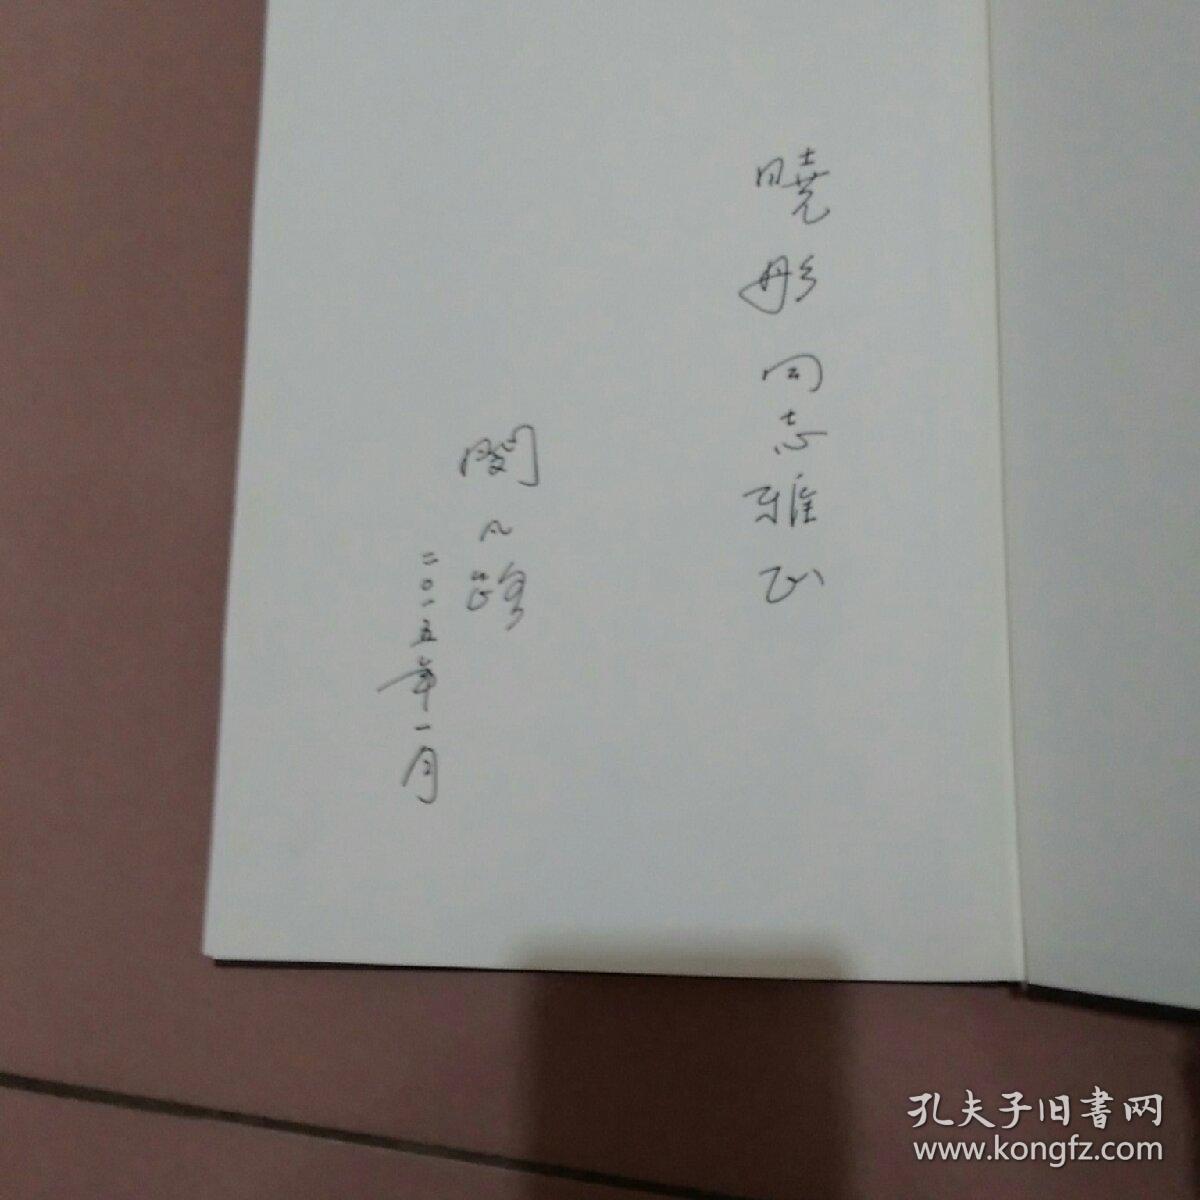 曉彤同志雅正
閔凡路
二〇一五年一月
孔夫子旧書网
www.kongfz.com